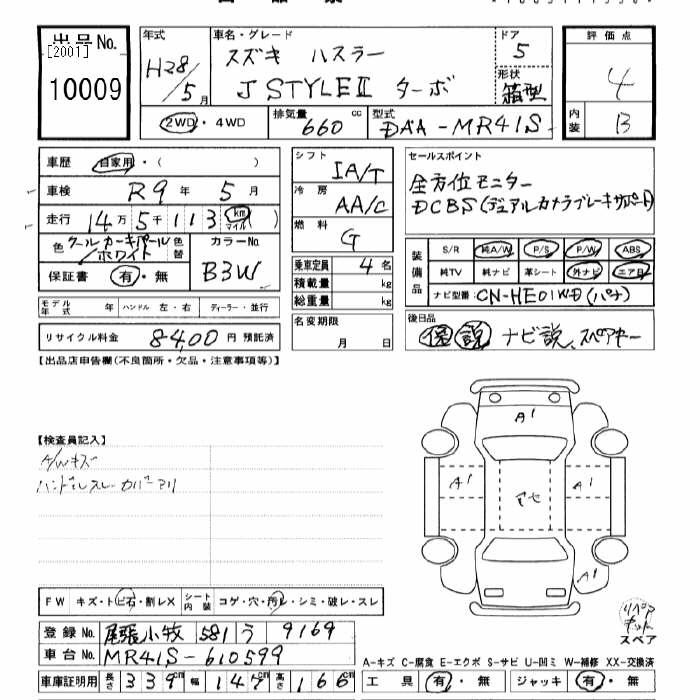 出品No.
[2001]
10009
年式
H28/5月
車名・グレード
スズキ ハスラー
J STYLEⅡ ターボ
ドア
5
形状
箱型
評価点
4
内装
B
2WD・4WD
排気量 660 cc
型式 DAA-MR41S
車歴 自家用・( )
車検 R9年 5月
走行 14万5千113 km マイル
色 クールカーキパール/ホワイト 色替
カラーNo. B3W
保証書 有・無
モデル年式 年 ハンドル 左・右 ディーラー・並行
リサイクル料金 8400 円 預託済
シフト IA/T
冷房 AA/C
燃料 G
乗車定員 4名
積載量 kg
総重量 kg
名変期限
月 日
セールスポイント
全方位モニター
DCBS(デュアルカメラブレーキサポート)
装備品
S/R 純A/W P/S P/W ABS
純TV 純ナビ 革シート 外ナビ エアB
ナビ型番 CN-HE01WD(パナ)
後日品
保 説 ナビ説、スペアキー
【出品店申告欄(不良箇所・欠品・注意事項等)】
【検査員記入】
A/Wキズ
ハンドルスレ カバーアリ
A1
A1
A1
A1
リペアキット
スペア
FW キズ・トビ石・割レX
シート内装 コゲ・穴・汚レ・シミ・破レ・スレ
登録No. 尾張小牧 581 う 9169
車台No. MR41S-610599
車庫証明用 長さ 339cm 幅 147cm 高さ 166cm
A-キズ C-腐食 E-エクボ S-サビ U-凹ミ W-補修 XX-交換済
工具 有・無 ジャッキ 有・無